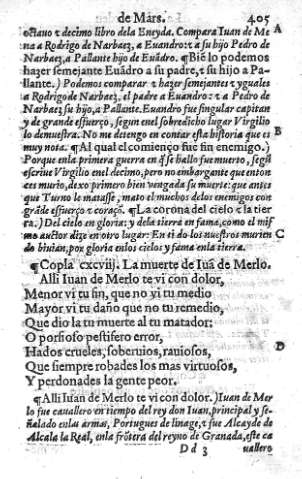 de Mars. 405
octauo ꝛ decimo libro dela Eneyda. Compara Iuan de Me A
na a Rodrigo de Narbaez, a Euandro: ꝛ a su hijo Pedro de
Narbaez, a Pallante hijo de Euãdro. ¶Biẽ lo podemos
hazer semejante Euãdro a su padre, ꝛ su hijo a Pa-
llante.) Podemos comparar ꝛ hazer semejantes y yguales
a Rodrigo de Narbaez, el padre a Euandro: ꝛ a Pedro de
Narbaez su hijo, a Pallante. Euandro fue singular capitan
y de grande esfuerço, segun enel sobredicho lugar Virgilio
lo demuestra. No me detengo en contar esta historia que es B
muy nota. ¶Al qual el comienço fue fin enemigo.)
Porque enla primera guerra en q̃ se hallo fue muerto, segũ
escriue Virgilio enel decimo, pero no embargante que enton
ces murio, dexo primero bien vengada su muerte: que antes
que Turno le matasse, mato el muchos delos enemigos con
grãde esfuerço ꝛ coraçõ. ¶La corona del cielo ꝛ la tier
ra.) Del cielo en gloria: y dela tierra en fama, como el mis
mo auctor dize en otro lugar: En ti do los nuestros murien C
do biuian, por gloria enlos cielos y fama enla tierra.
¶Copla cxcviij. La muerte de Iuã de Merlo.
Alli Iuan de Merlo te vi con dolor,
Menor vi tu fin, que no vi tu medio
Mayor vi tu daño que no tu remedio,
Que dio la tu muerte al tu matador:
O porfioso pestifero error,
Hados crueles, soberuios, rauiosos, D
Que siempre robades los mas virtuosos,
Y perdonades la gente peor.
¶Alli Iuan de Merlo te vi con dolor.) Iuan de Mer
lo fue cauallero en tiempo del rey don Iuan, principal y se-
ñalado enlas armas, Portugues de linage, ꝛ fue Alcayde de
Alcala la Real, enla frõtera del reyno de Granada, este ca
D d 3 uallero